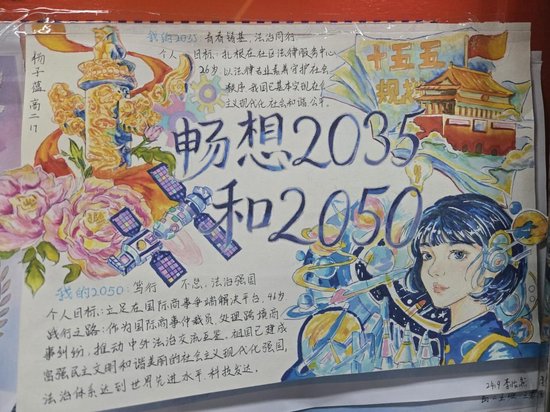 杨子蕴 高二17
我的2035 青春铸基,法治同行
个人目标:扎根在社区法律服务中心
26岁 以法律专业素养守护社会
秩序 我国已基本实现社会
主义现代化 社会和谐公平.
十五五
规划
畅想2035
和2050
我的2050:笃行不怠,法治强国
个人目标:立足在国际商事争端解决平台.46岁
践行之路:作为国际商事仲裁员 处理跨境商
事纠纷,推动中外法治交流互鉴.祖国已建成
富强民主文明和谐美丽的社会主义现代化强国,
法治体系达到世界先进水平.科技发达.